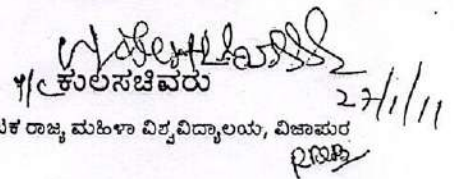 ಕುಲಸಚಿವರು
27/1/11
ಟಕ ರಾಜ್ಯ ಮಹಿಳಾ ವಿಶ್ವವಿದ್ಯಾಲಯ, ವಿಜಾಪುರ